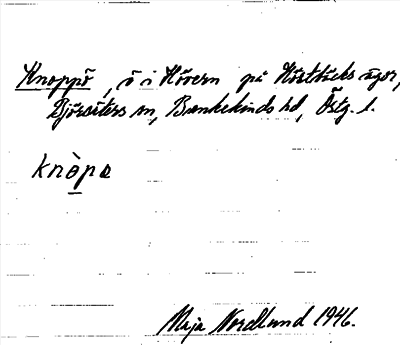 Knoppö, ö i Hövern på Hästbäcks ägor,
Björsäters sn, Bankekinds hd, Östg. l.
knòpa
Maja Nordlund 1946.